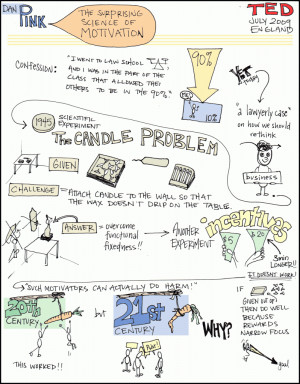 DAN
PINK
THE SURPRISING
SCIENCE OF
MOTIVATION
TED
JULY 2009
ENGLAND
CONFESSION:
"I WENT TO LAW SCHOOL
AND I WAS IN THE PART OF THE
CLASS THAT ALLOWED THE
OTHERS TO BE IN THE 90%"
90%
ME
10%
YET
TODAY
"a lawyerly case"
on how we should
rethink
business
1945
SCIENTIFIC
EXPERIMENT
The CANDLE PROBLEM
GIVEN
CHALLENGE = ATTACH CANDLE TO THE WALL SO THAT
THE WAX DOESN'T DRIP ON THE TABLE.
ANSWER = overcome
functional
fixedness!!
ANOTHER
EXPERIMENT
incentives
$5
$20
3min
LONGER!!
IT DOESN'T WORK!
"SUCH MOTIVATORS CAN ACTUALLY DO HARM!"
20TH
CENTURY
but
21st
CENTURY
WHY?
THIS WORKED!!
IF
THEN DO WELL
BECAUSE
REWARDS
NARROW FOCUS
goal